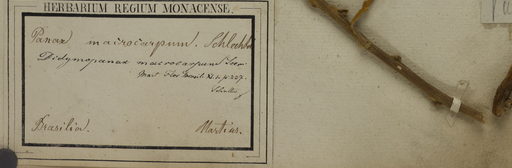 HERBARIUM REGIUM MONACENSE.
Panax macrocarpum. Schlechtd
Didymopanax macrocarpum Seem
Mart. Flor. Brasil. XI. 1. p. 237.
Brasilia. Martius.